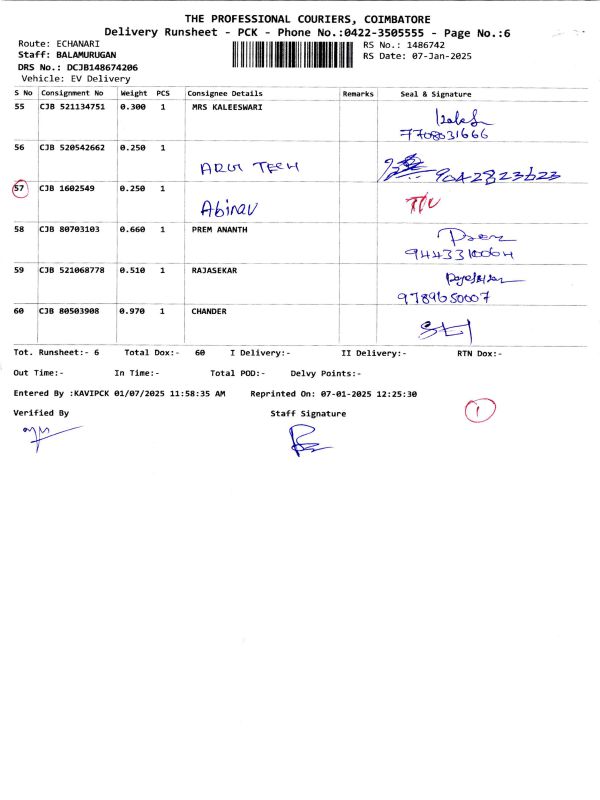 THE PROFESSIONAL COURIERS, COIMBATORE
Delivery Runsheet - PCK - Phone No.:0422-3505555 - Page No.:6
Route: ECHANARI
RS No.: 1486742
Staff: BALAMURUGAN
RS Date: 07-Jan-2025
DRS No.: DCJB148674206
Vehicle: EV Delivery
S No Consignment No Weight PCS Consignee Details Remarks Seal & Signature
55 CJB 521134751 0.300 1 MRS KALEESWARI
7708031666
56 CJB 520542662 0.250 1
ARUL TECH 9042823623
57 CJB 1602549 0.250 1
Abinav
58 CJB 80703103 0.660 1 PREM ANANTH Prem
9443310064
59 CJB 521068778 0.510 1 RAJASEKAR
9789650007
60 CJB 80503908 0.970 1 CHANDER
Tot. Runsheet:- 6 Total Dox:- 60 I Delivery:- II Delivery:- RTN Dox:-
Out Time:- In Time:- Total POD:- Delvy Points:-
Entered By :KAVIPCK 01/07/2025 11:58:35 AM Reprinted On: 07-01-2025 12:25:30
1
Verified By Staff Signature